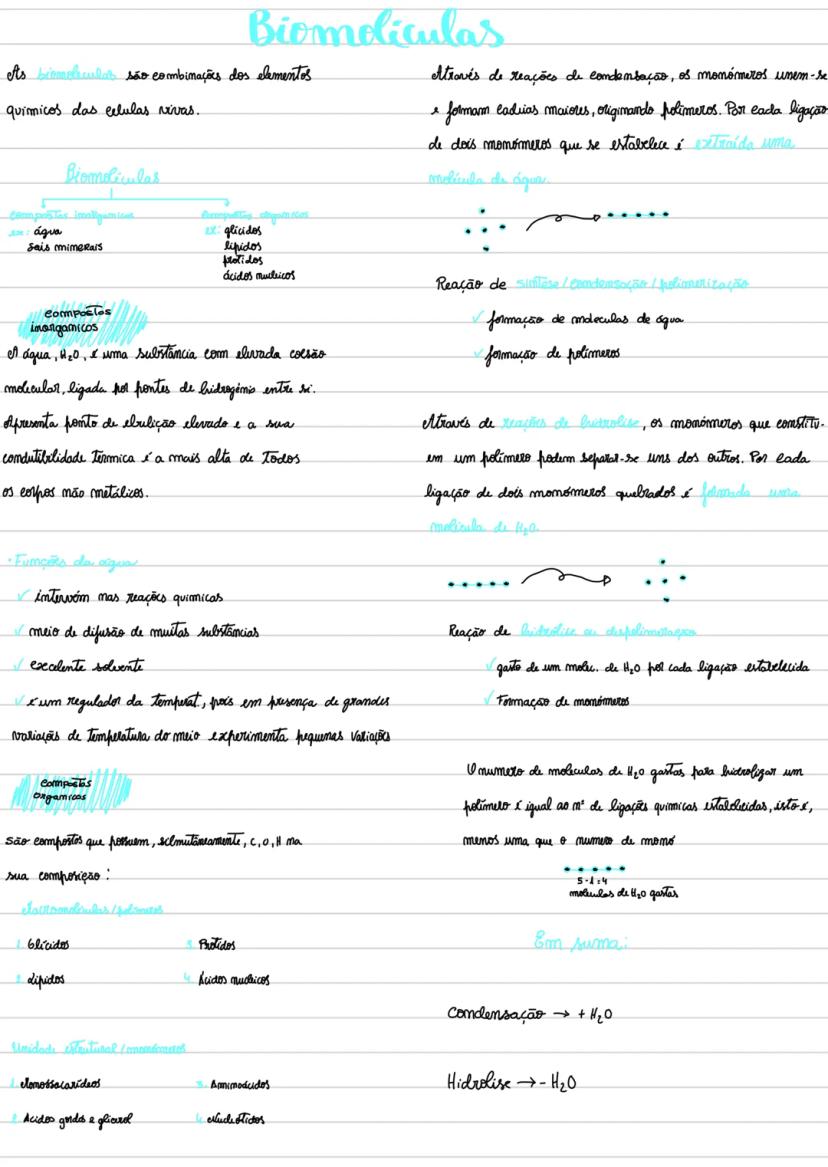 Biomoléculas
As biomoléculas são combinações dos elementos
químicos das celulas vivas.
Biomoléculas
compostos inorgamicos
ex: água
sais minerais
compostos organicos
ex: glícidos
lípidos
protidos
ácidos nucleicos
compostos
inorgamicos
A água, H₂O, é uma substância com elevada coesão
molecular, ligada por pontes de hidrogénio entre si.
Apresenta ponto de ebulição elevado e a sua
condutibilidade térmica é a mais alta de todos
os corpos não metálicos.
• Funções da água
✓ intervém nas reações quimicas
✓ meio de difusão de muitas substâncias
✓ excelente solvente
✓ é um regulador da temperat., pois em presença de grandes
variações de temperatura do meio experimenta pequenas variações
compostos
organicos
são compostos que possuem, simultâneamente, C, O, H na
sua composição:
Macromoléculas / polímeros
1. Glícidos
2. Lípidos
3. Protidos
4. Ácidos nucleicos
Unidade estrutural / monómeros
1. Monossacarídeos
2. Acidos gordos e glicerol
3. Aminoácidos
4. Nucleótidos
Através de reações de condensação, os monómeros unem-se
e formam cadeias maiores, originando polímeros. Por cada ligação
de dois monómeros que se estabelece é extraída uma
molécula de água.
Reação de síntese / condensação / polimerização
✓ formação de moleculas de água
✓ formação de polímeros
Através de reações de hidrolise, os monómeros que constitu-
em um polímero podem separar-se uns dos outros. Por cada
ligação de dois monómeros quebrados é formada uma
molécula de H₂O.
Reação de hidrólise ou despolimeração
✓ gasto de um molec. de H₂O por cada ligação estabelecida
✓ Formação de monómeros
O numero de moleculas de H₂O gastas para hidrolizar um
polímero é igual ao nº de ligações quimicas estabelecidas, isto é,
menos uma que o numero de monó
5-1=4
moleculas de H₂O gastas
Em suma:
Condensação → + H₂O
Hidrólise → - H₂O